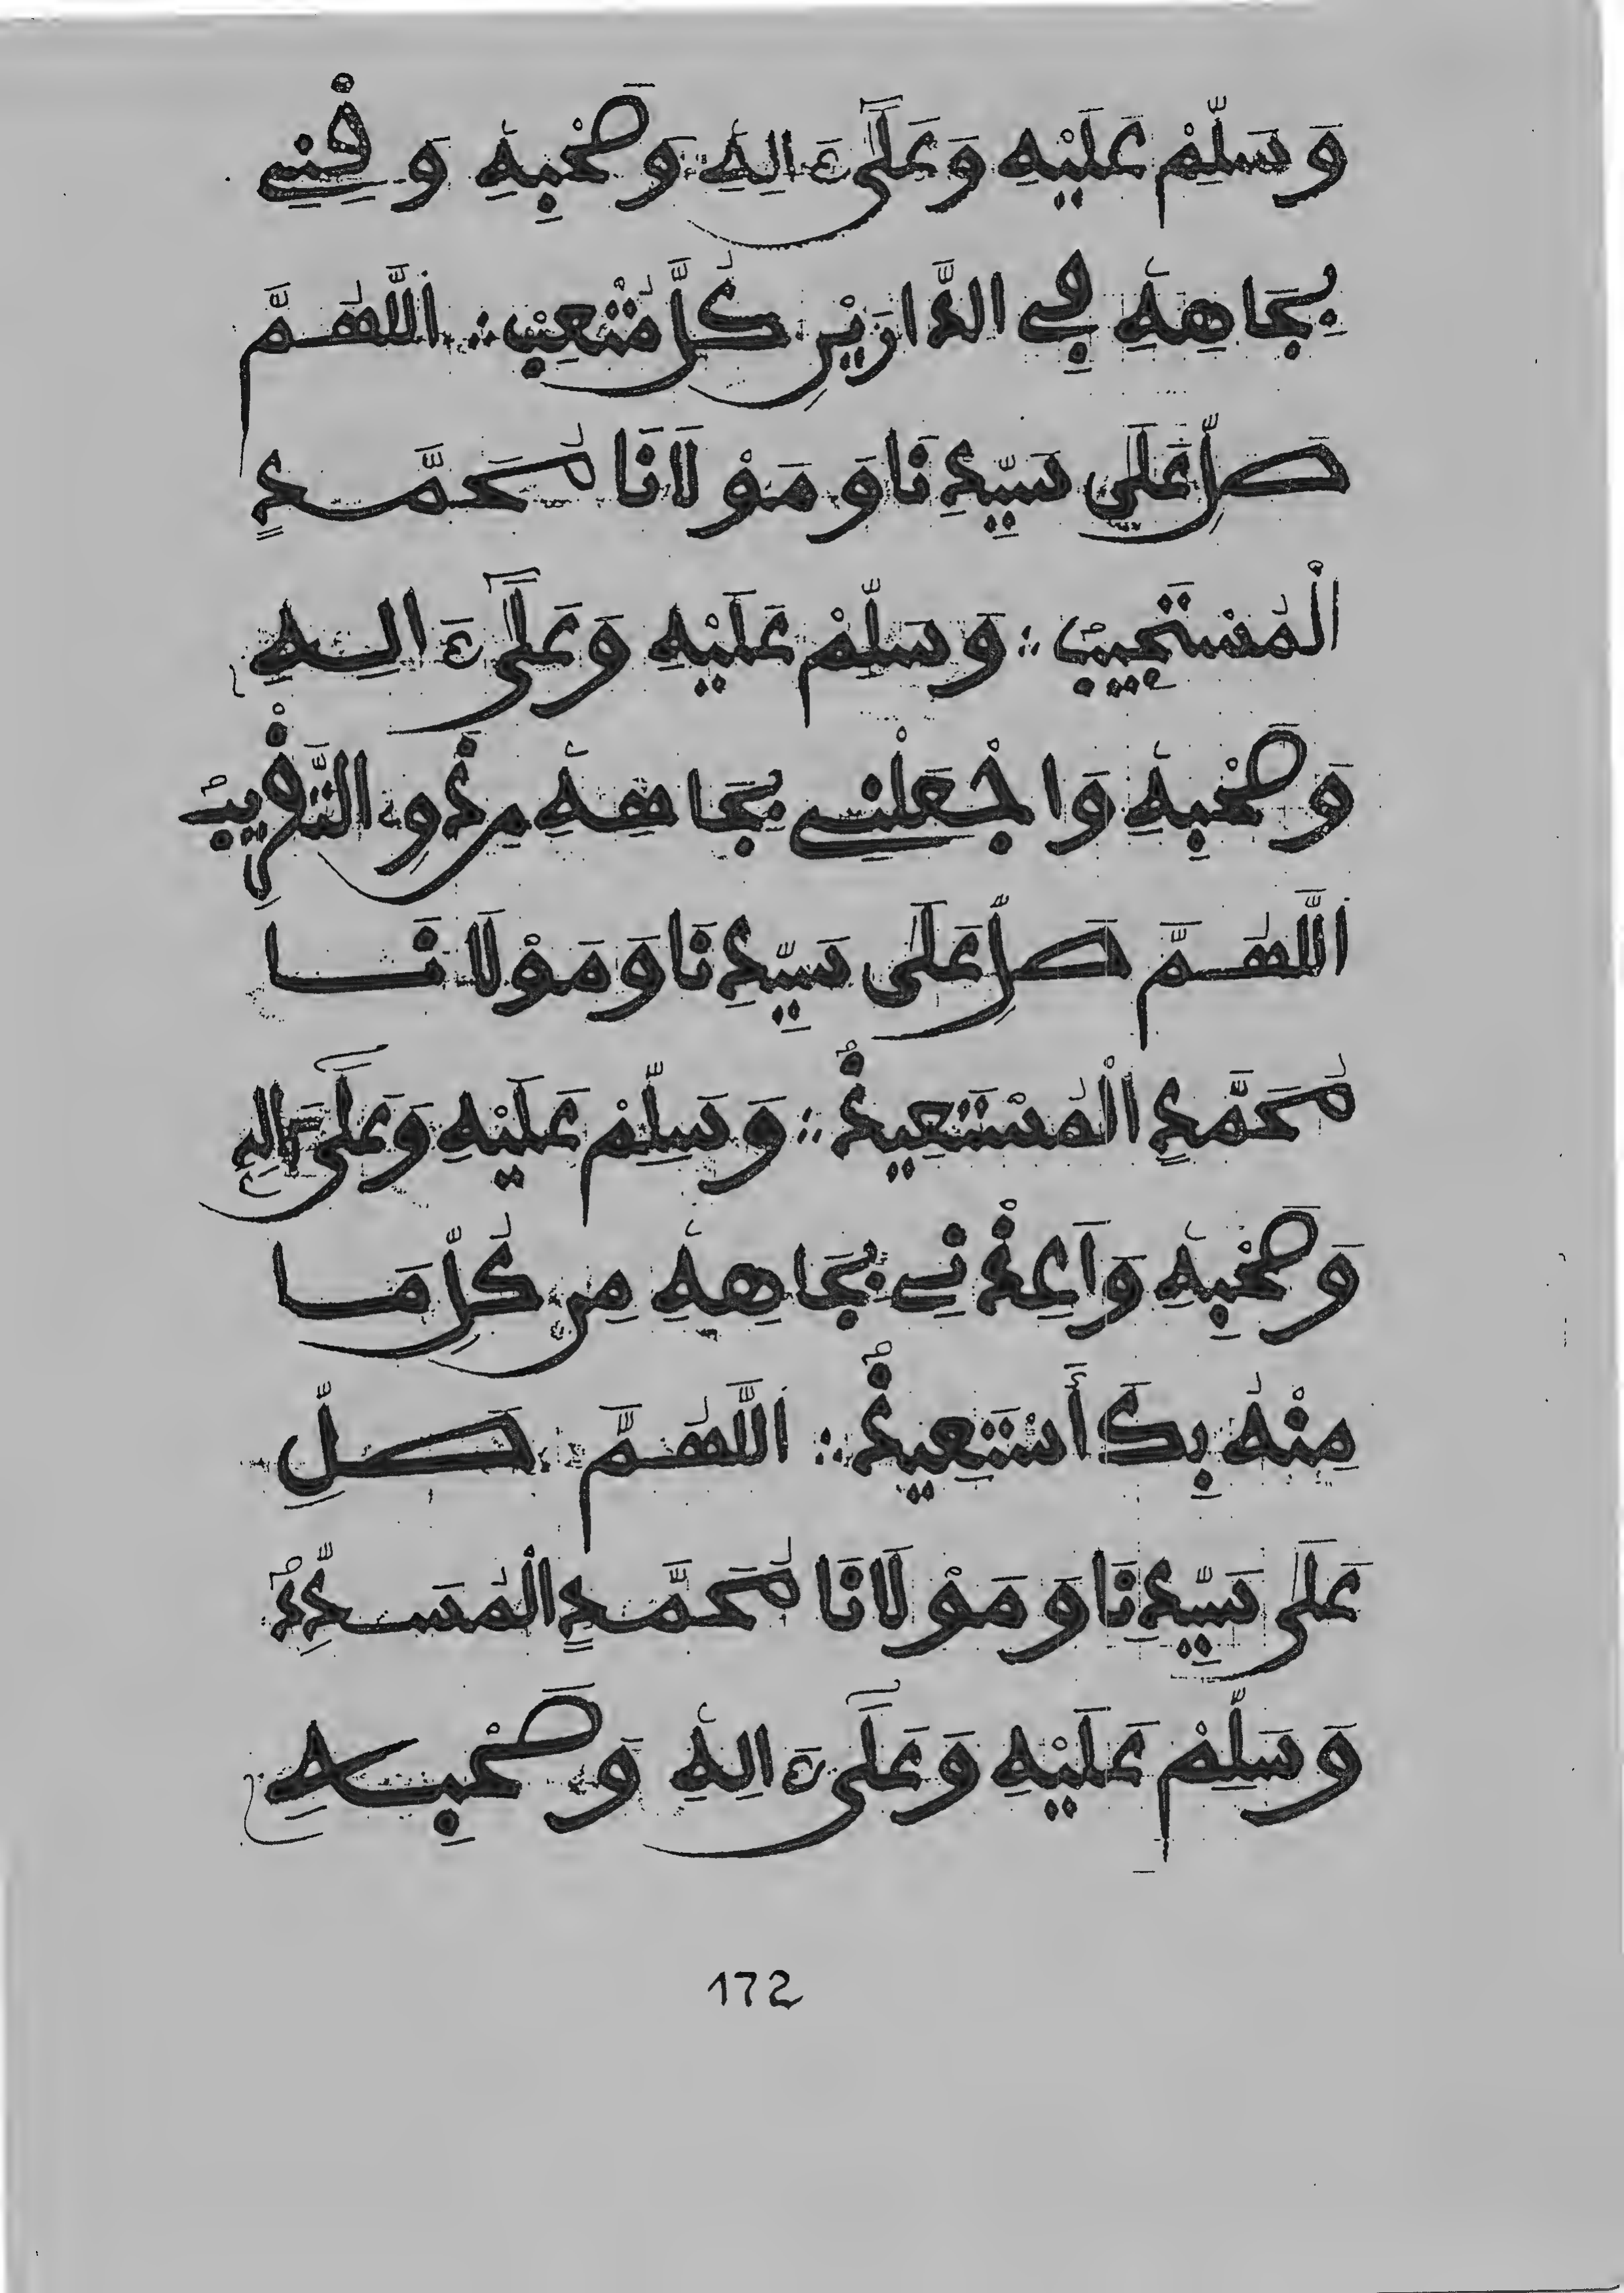 وَسَلِّمْ عَلَيْهِ وَعَلَىٰٓ ءَالِهِۦ وَصَحْبِهِۦ وَقِنِے
بِجَاهِهِۦ فِے الدَّارَيْنِ كُلَّ مُتْعِبٍ ؞ اَللَّهُمَّ
صَلِّ عَلَى سَيِّدِنَا وَمَوْلَانَا مُحَمَّدٍ
الْمُسْتَجِيبِ ؞ وَسَلِّمْ عَلَيْهِ وَعَلَىٰٓ ءَالِهِ
وَصَحْبِهِۦ وَاجْعَلْنِے بِجَاهِهِۦ مِن ذَوِے التَّقْرِيبِ
اَللَّهُمَّ صَلِّ عَلَى سَيِّدِنَا وَمَوْلَانَا
مُحَمَّدٍ الْمُسْتَعِيذُ ؞ وَسَلِّمْ عَلَيْهِ وَعَلَىٰٓ ءَالِهِ
وَصَحْبِهِۦ وَأَعِذْنِے بِجَاهِهِۦ مِن كُلِّ مَا
مِنْهُ بِكَ أَسْتَعِيذُ ؞ اَللَّهُمَّ صَلِّ
عَلَى سَيِّدِنَا وَمَوْلَانَا مُحَمَّدٍ الْمُسَدِّدُ
وَسَلِّمْ عَلَيْهِ وَعَلَىٰٓ ءَالِهِۦ وَصَحْبِهِ
172